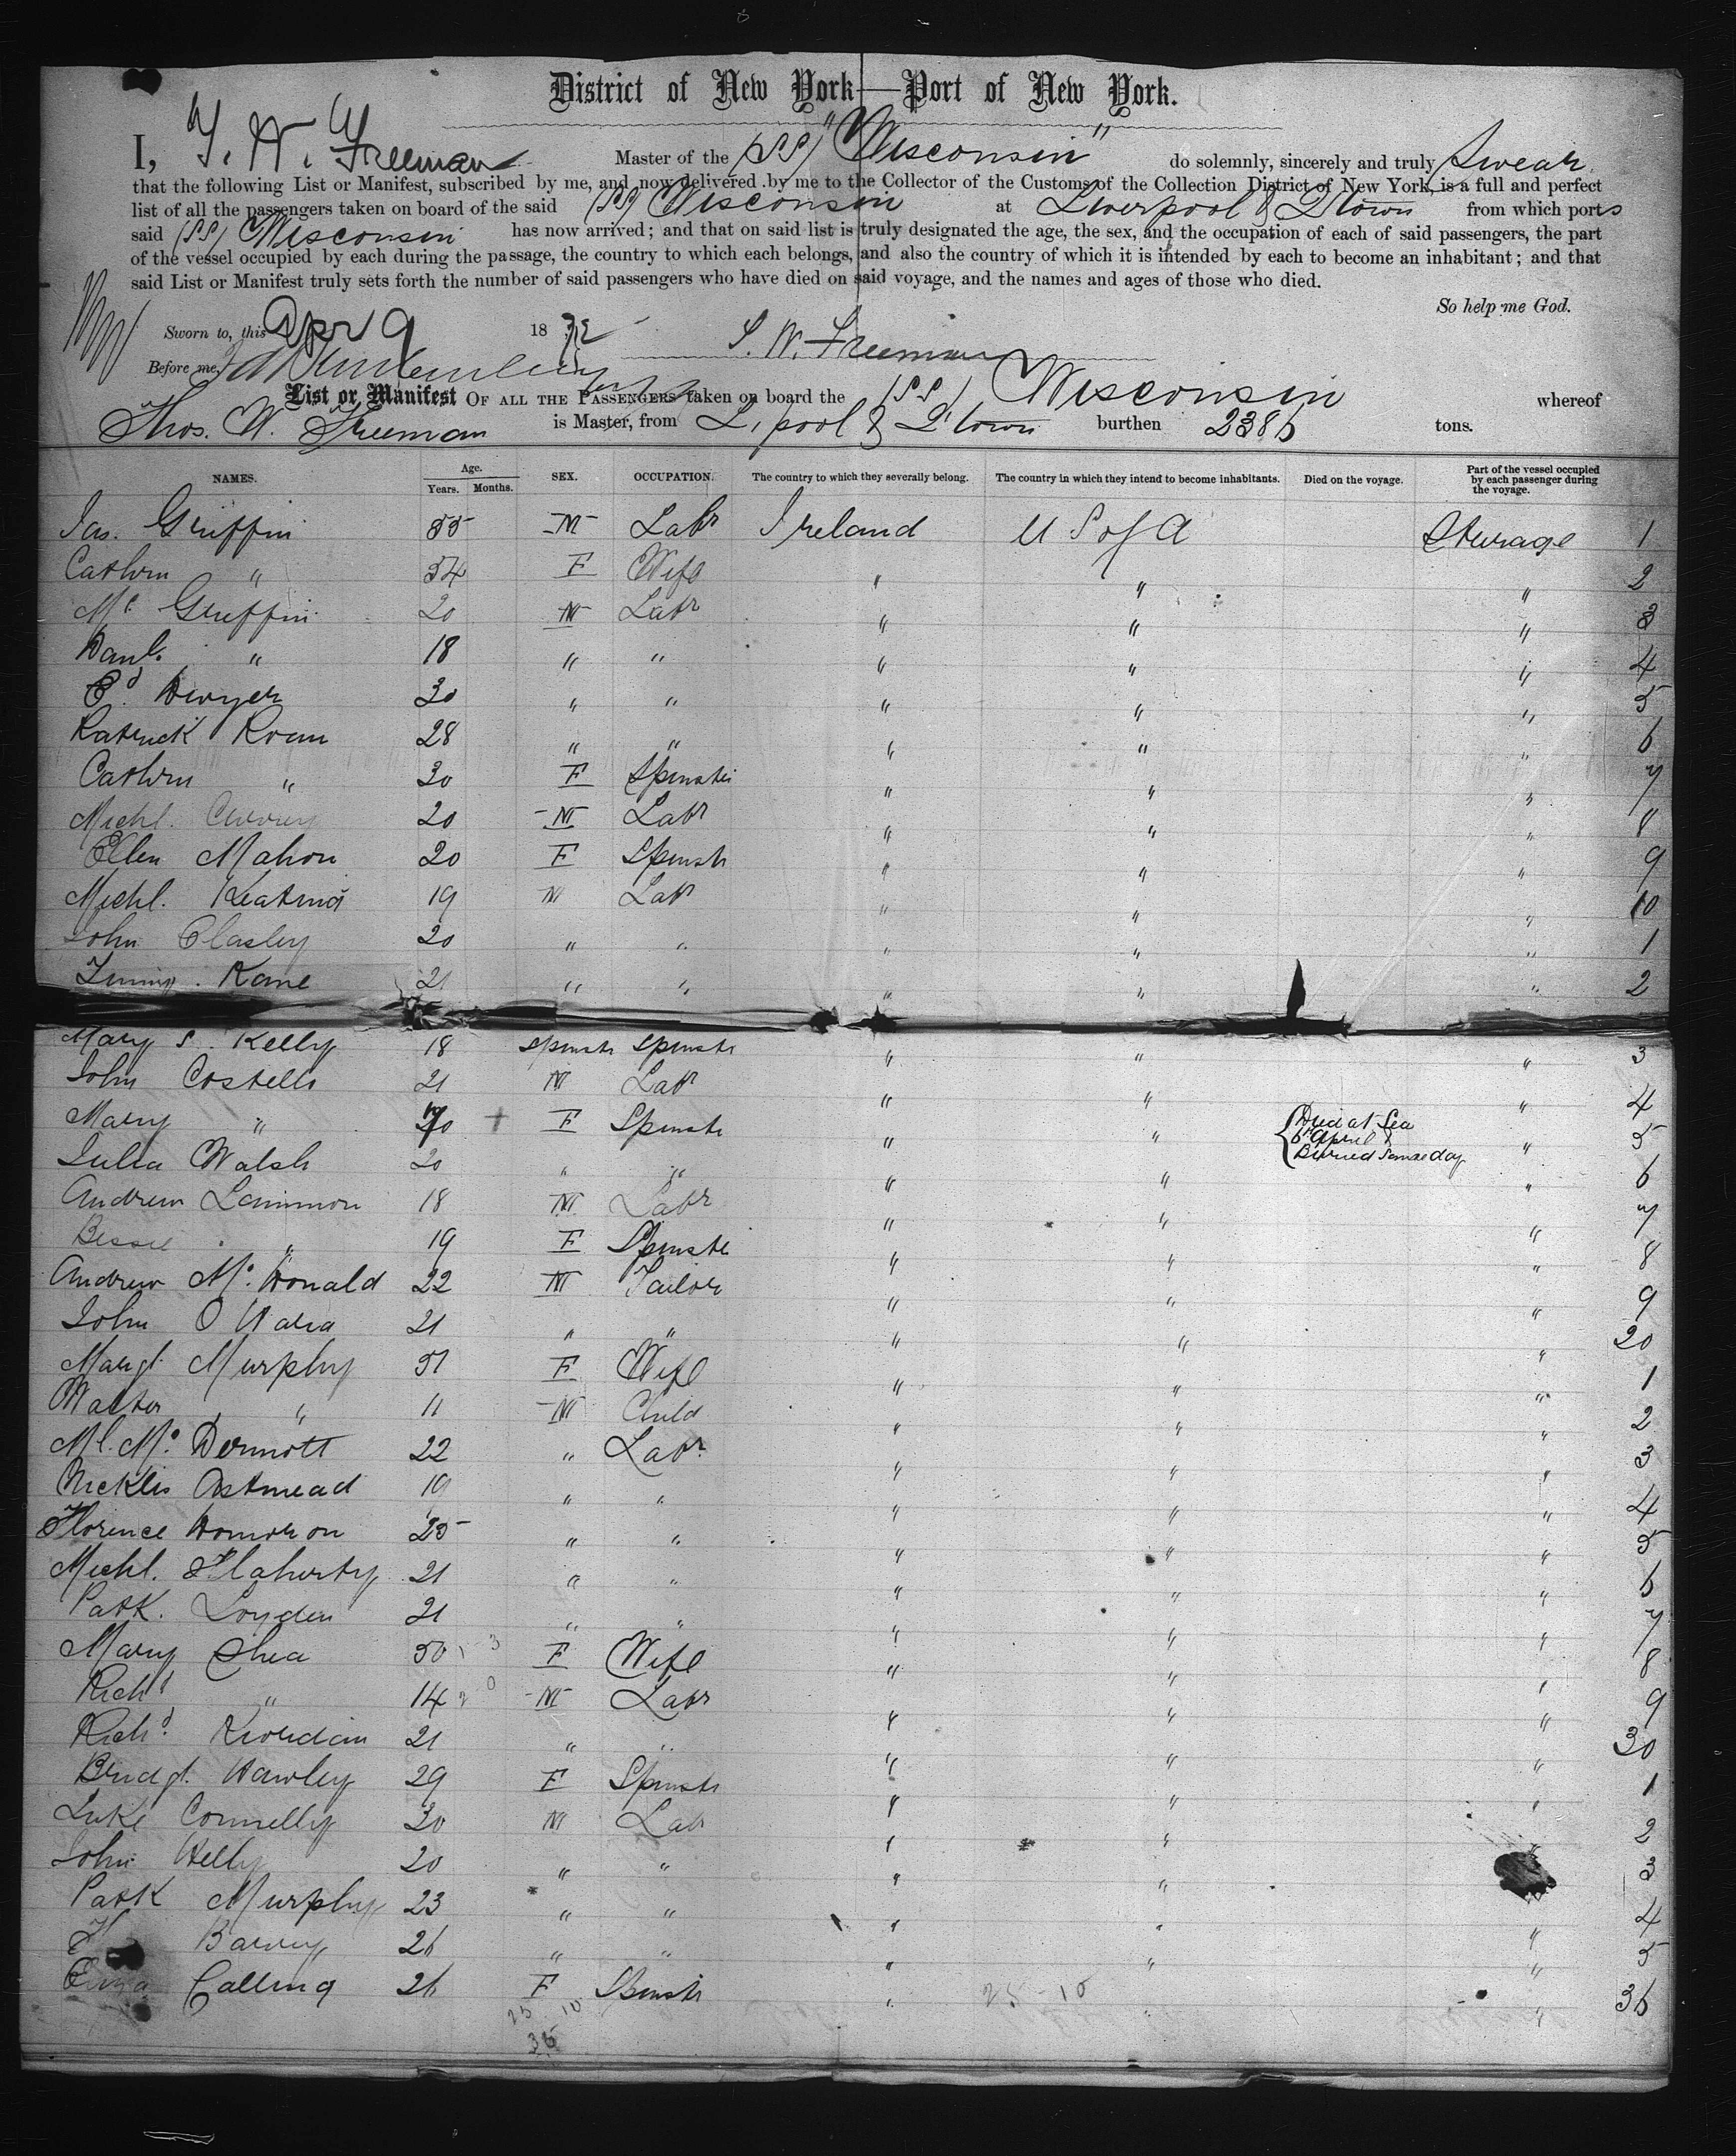 District of New York—Port of New York.
I, T. W. Freeman Master of the (SS) "Wisconsin" do solemnly, sincerely and truly Swear
that the following List or Manifest, subscribed by me, and now delivered by me to the Collector of the Customs of the Collection District of New York, is a full and perfect
list of all the passengers taken on board of the said (SS) Wisconsin at Liverpool & Qtown from which ports
said (SS) Wisconsin has now arrived; and that on said list is truly designated the age, the sex, and the occupation of each of said passengers, the part
of the vessel occupied by each during the passage, the country to which each belongs, and also the country of which it is intended by each to become an inhabitant; and that
said List or Manifest truly sets forth the number of said passengers who have died on said voyage, and the names and ages of those who died.
So help me God.
Sworn to, this Apr 9 1872 T. W. Freeman
Before me,
List or Manifest OF ALL THE PASSENGERS taken on board the (SS) Wisconsin whereof
Thos. W. Freeman is Master, from L'pool & Q'town burthen 2386 tons.
NAMES. Age. Years. Months. SEX. OCCUPATION. The country to which they severally belong. The country in which they intend to become inhabitants. Died on the voyage. Part of the vessel occupied by each passenger during the voyage.
Jas. Griffin 55 M Labr Ireland U S of A Steerage 1
Cathrn " 54 F Wife " " " 2
Mc Griffin 20 M Labr " " " 3
Danl. " 18 " " " " " 4
Ed. Dwyer 30 " " " " " 5
Patrick Roan 28 " " " " " 6
Cathrn " 30 F Spinster " " " 7
Michl. 20 M Labr " " " 8
Ellen Mahon 20 F Spinstr " " " 9
Michl. Keating 19 M Labr " " " 10
John Clasley 20 " " " " " 1
Kane 21 " " " " " 2
Mary S. Kelly 18 Spinstr Spinstr " " " 3
John Costello 21 M Labr " " " 4
Mary " + F Spinstr " " Died at Sea 6th April & Buried Same day " 5
Julia Walsh 20 " " " " " 6
Andrew Lammon 18 M Labr " " " 7
Bessie " 19 F Spinste " " " 8
Andrew Mc. Donald 22 M Tailor " " " 9
John O Hara 21 " " " " " 20
Margt. Murphy 51 F Wife " " " 1
Walter " 11 M Child " " " 2
Ml. Mc. Dermott 22 " Labr " " " 3
Nicklis Astmead 19 " " " " " 4
Florence Donohon 25 " " " " " 5
Michl. Flaherty 21 " " " " " 6
Patk. Loyden 21 " " " " " 7
Mary Shea 50 F Wife " " " 8
Richd " 14 M Labr " " " 9
Richd. Riordan 21 " " " " " 30
Bridgt. Hawley 29 F Spinstr " " " 1
Luke Connelly 30 M Labr " " " 2
John Kelly 20 " " " " 3
Patk Murphy 23 " " " " " 4
Barry 26 " " " " " 5
Eliza Calling 26 F Spinstr " " " 36
25 10 25-10
35